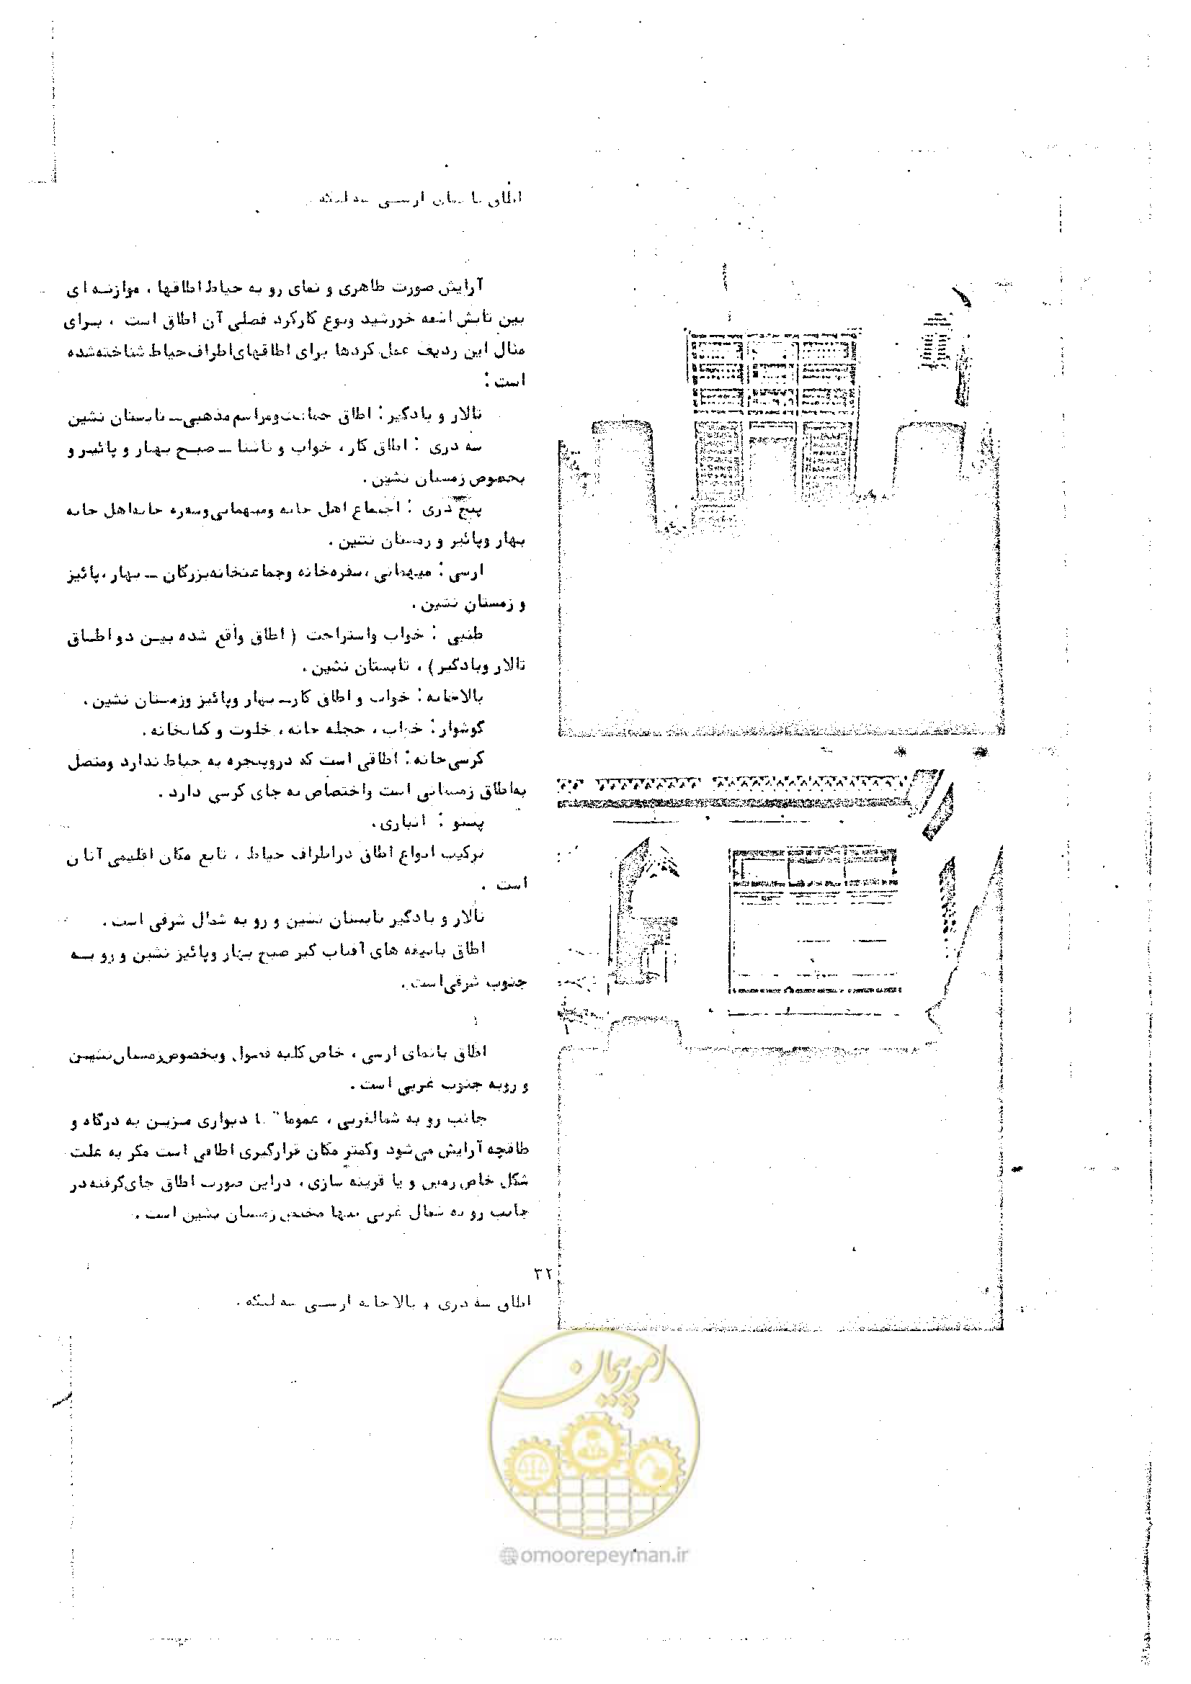 اطاق با نمای ارسی سه لنگه .
آرایش صورت ظاهری و نمای رو به حیاط اطاقها ، موازنه ای
بین تابش اشعه خورشید ونوع کارکرد فصلی آن اطاق است ، برای
مثال این ردیف عمل کردها برای اطاقهای اطراف حیاط شناخته شده
است :
تالار و بادگیر : اطاق جماعت ومراسم مذهبی ــ تابستان نشین
سه دری : اطاق کار ، خواب و ناشتا ــ صبح بهار و پائیز و
بخصوص زمستان نشین .
پنج دری : اجتماع اهل خانه ومیهمانی وسفره خانه اهل خانه
بهار وپائیز و زمستان نشین .
ارسی : میهمانی ، سفره خانه وجماعتخانه بزرگان ــ بهار ، پائیز
و زمستان نشین .
طنبی : خواب واستراحت ( اطاق واقع شده بین دو اطاق
تالار وبادگیر ) ، تابستان نشین .
بالاخانه : خواب و اطاق کار ــ بهار وپائیز وزمستان نشین .
گوشوار : خواب ، حجله خانه ، خلوت و کتابخانه .
کرسی خانه : اطاقی است که در وپنجره به حیاط ندارد ومتصل
به اطاق زمستانی است واختصاص به جای کرسی دارد .
پستو : انباری .
ترکیب انواع اطاق دراطراف حیاط ، تابع مکان اقلیمی آنان
است .
تالار و بادگیر تابستان نشین و رو به شمال شرقی است .
اطاق باتیغه های آفتاب گیر صبح بهار وپائیز نشین و رو به
جنوب شرقی است .
اطاق بانمای ارسی ، خاص کلیه فصول وبخصوص زمستان نشین
و روبه جنوب غربی است .
جانب رو به شمالغربی ، عموما" با دیواری مزین به درگاه و
طاقچه آرایش می شود وکمتر مکان قرارگیری اطاقی است مگر به علت
شکل خاص زمین و یا قرینه سازی ، دراین صورت اطاق جای گرفته در
جانب رو به شمال غربی تنها مختص زمستان نشین است .
۳۲
اطاق سه دری و بالاخانه ارسی سه لنگه .
امور پیمان
@omoorepeyman.ir